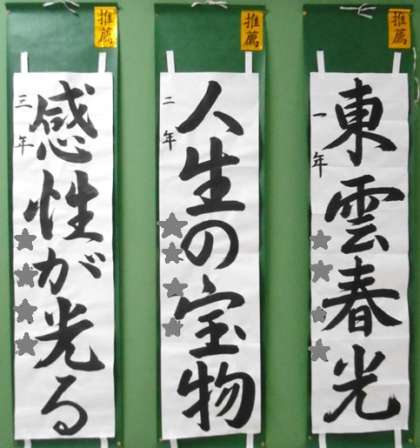 推薦
東雲春光
一年
推薦
人生の宝物
二年
推薦
感性が光る
三年